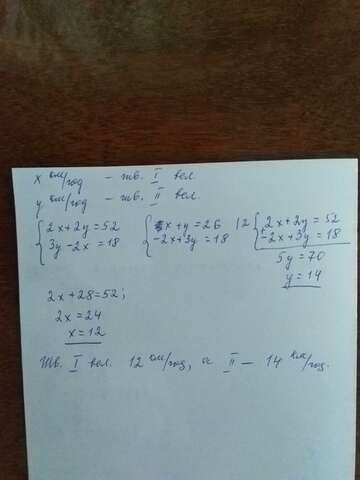 x км/год – шв. I вел.
y км/год – шв. II вел.
{2x+2y=52 {x+y=26 |2 {2x+2y=52
{3y-2x=18 {-2x+3y=18 {-2x+3y=18
5y=70
y=14
2x+28=52;
2x=24
x=12
Шв. I вел. 12 км/год, а II – 14 км/год.